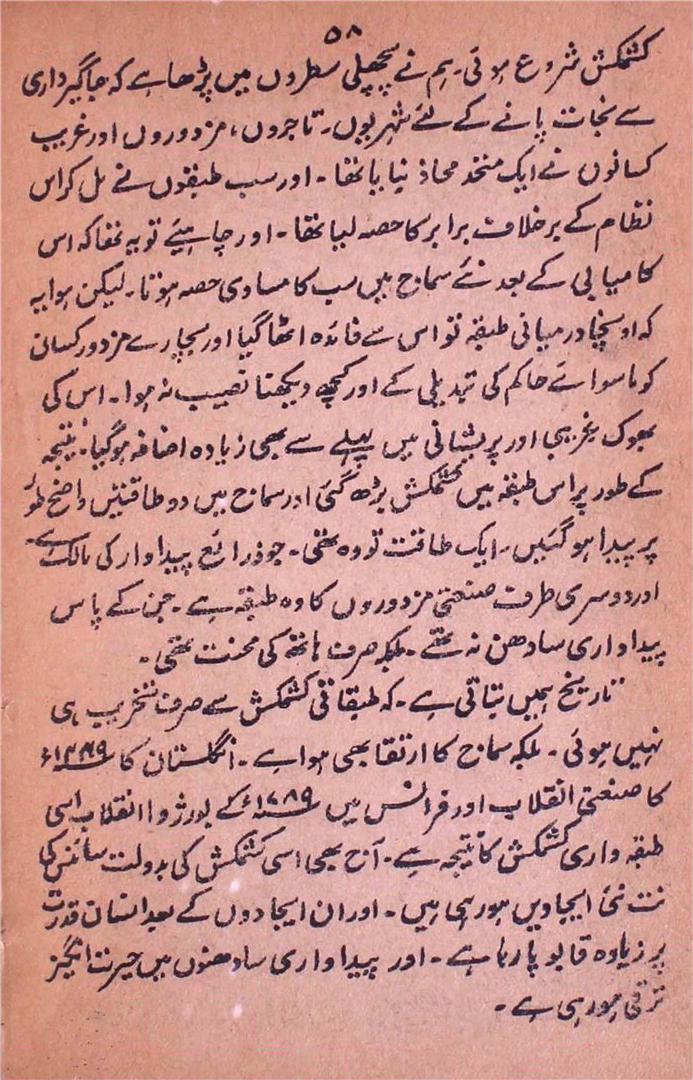 ۵۸
کشمکش شروع ہوئی۔ ہم نے پچھلی سطروں میں پڑھا ہے کہ جاگیرداری
سے نجات پانے کے لئے شہریوں۔ تاجروں، مزدوروں اور غریب
کسانوں نے ایک متحد محاذ بنایا تھا۔ اور سب طبقوں نے مل کر اس
نظام کے برخلاف برابر کا حصہ لیا تھا۔ اور چاہیئے تو یہ تھا کہ اس
کامیابی کے بعد نئے سماج میں سب کا مساوی حصہ ہوتا۔ لیکن ہوا یہ
کہ اونچا درمیانی طبقہ تو اس سے فائدہ اٹھا گیا اور بیچارے مزدور کسان
کو ماسوائے حاکم کی تبدیلی کے اور کچھ دیکھنا نصیب نہ ہوا۔ اس کی
بھوک غریبی اور پریشانی میں پہلے سے بھی زیادہ اضافہ ہوگیا۔ نتیجہ
کے طور پر اس طبقہ میں کشمکش بڑھ گئی اور سماج میں دو طاقتیں واضح طور
پر پیدا ہو گئیں۔ ایک طاقت تو وہ تھی۔ جو ذرائع پیداوار کی مالک ہے۔
اور دوسری طرف صنعتی مزدوروں کا وہ طبقہ ہے۔ جن کے پاس
پیداواری سادھن نہ تھے۔ بلکہ صرف ہاتھ کی محنت تھی۔
تاریخ ہمیں بتاتی ہے۔ کہ طبقاتی کشمکش سے صرف تخریب ہی
نہیں ہوئی۔ بلکہ سماج کا ارتقا بھی ہوا ہے۔ انگلستان کا
کا صنعتی انقلاب اور فرانس میں ۱۷۸۹ء کے بورژوا انقلاب اسی
طبقہ واری کشمکش کا نتیجہ ہے۔ آج بھی اسی کشمکش کی بدولت سائنس کی
نت نئی ایجادیں ہو رہی ہیں۔ اور ان ایجادوں کے بعد انسان قدرت
پر زیادہ قابو پا رہا ہے۔ اور پیداواری سادھنوں میں حیرت انگیز
ترقی ہو رہی ہے۔